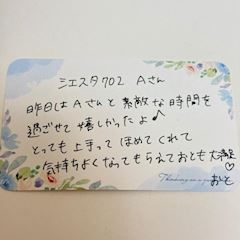 シエスタ702 Aさん
昨日はAさんと素敵な時間を
過ごせて嬉しかったよ
とっても上手ってほめてくれて
気持ちよくなってもらえておとも大満足♡
Thinking on a
おと